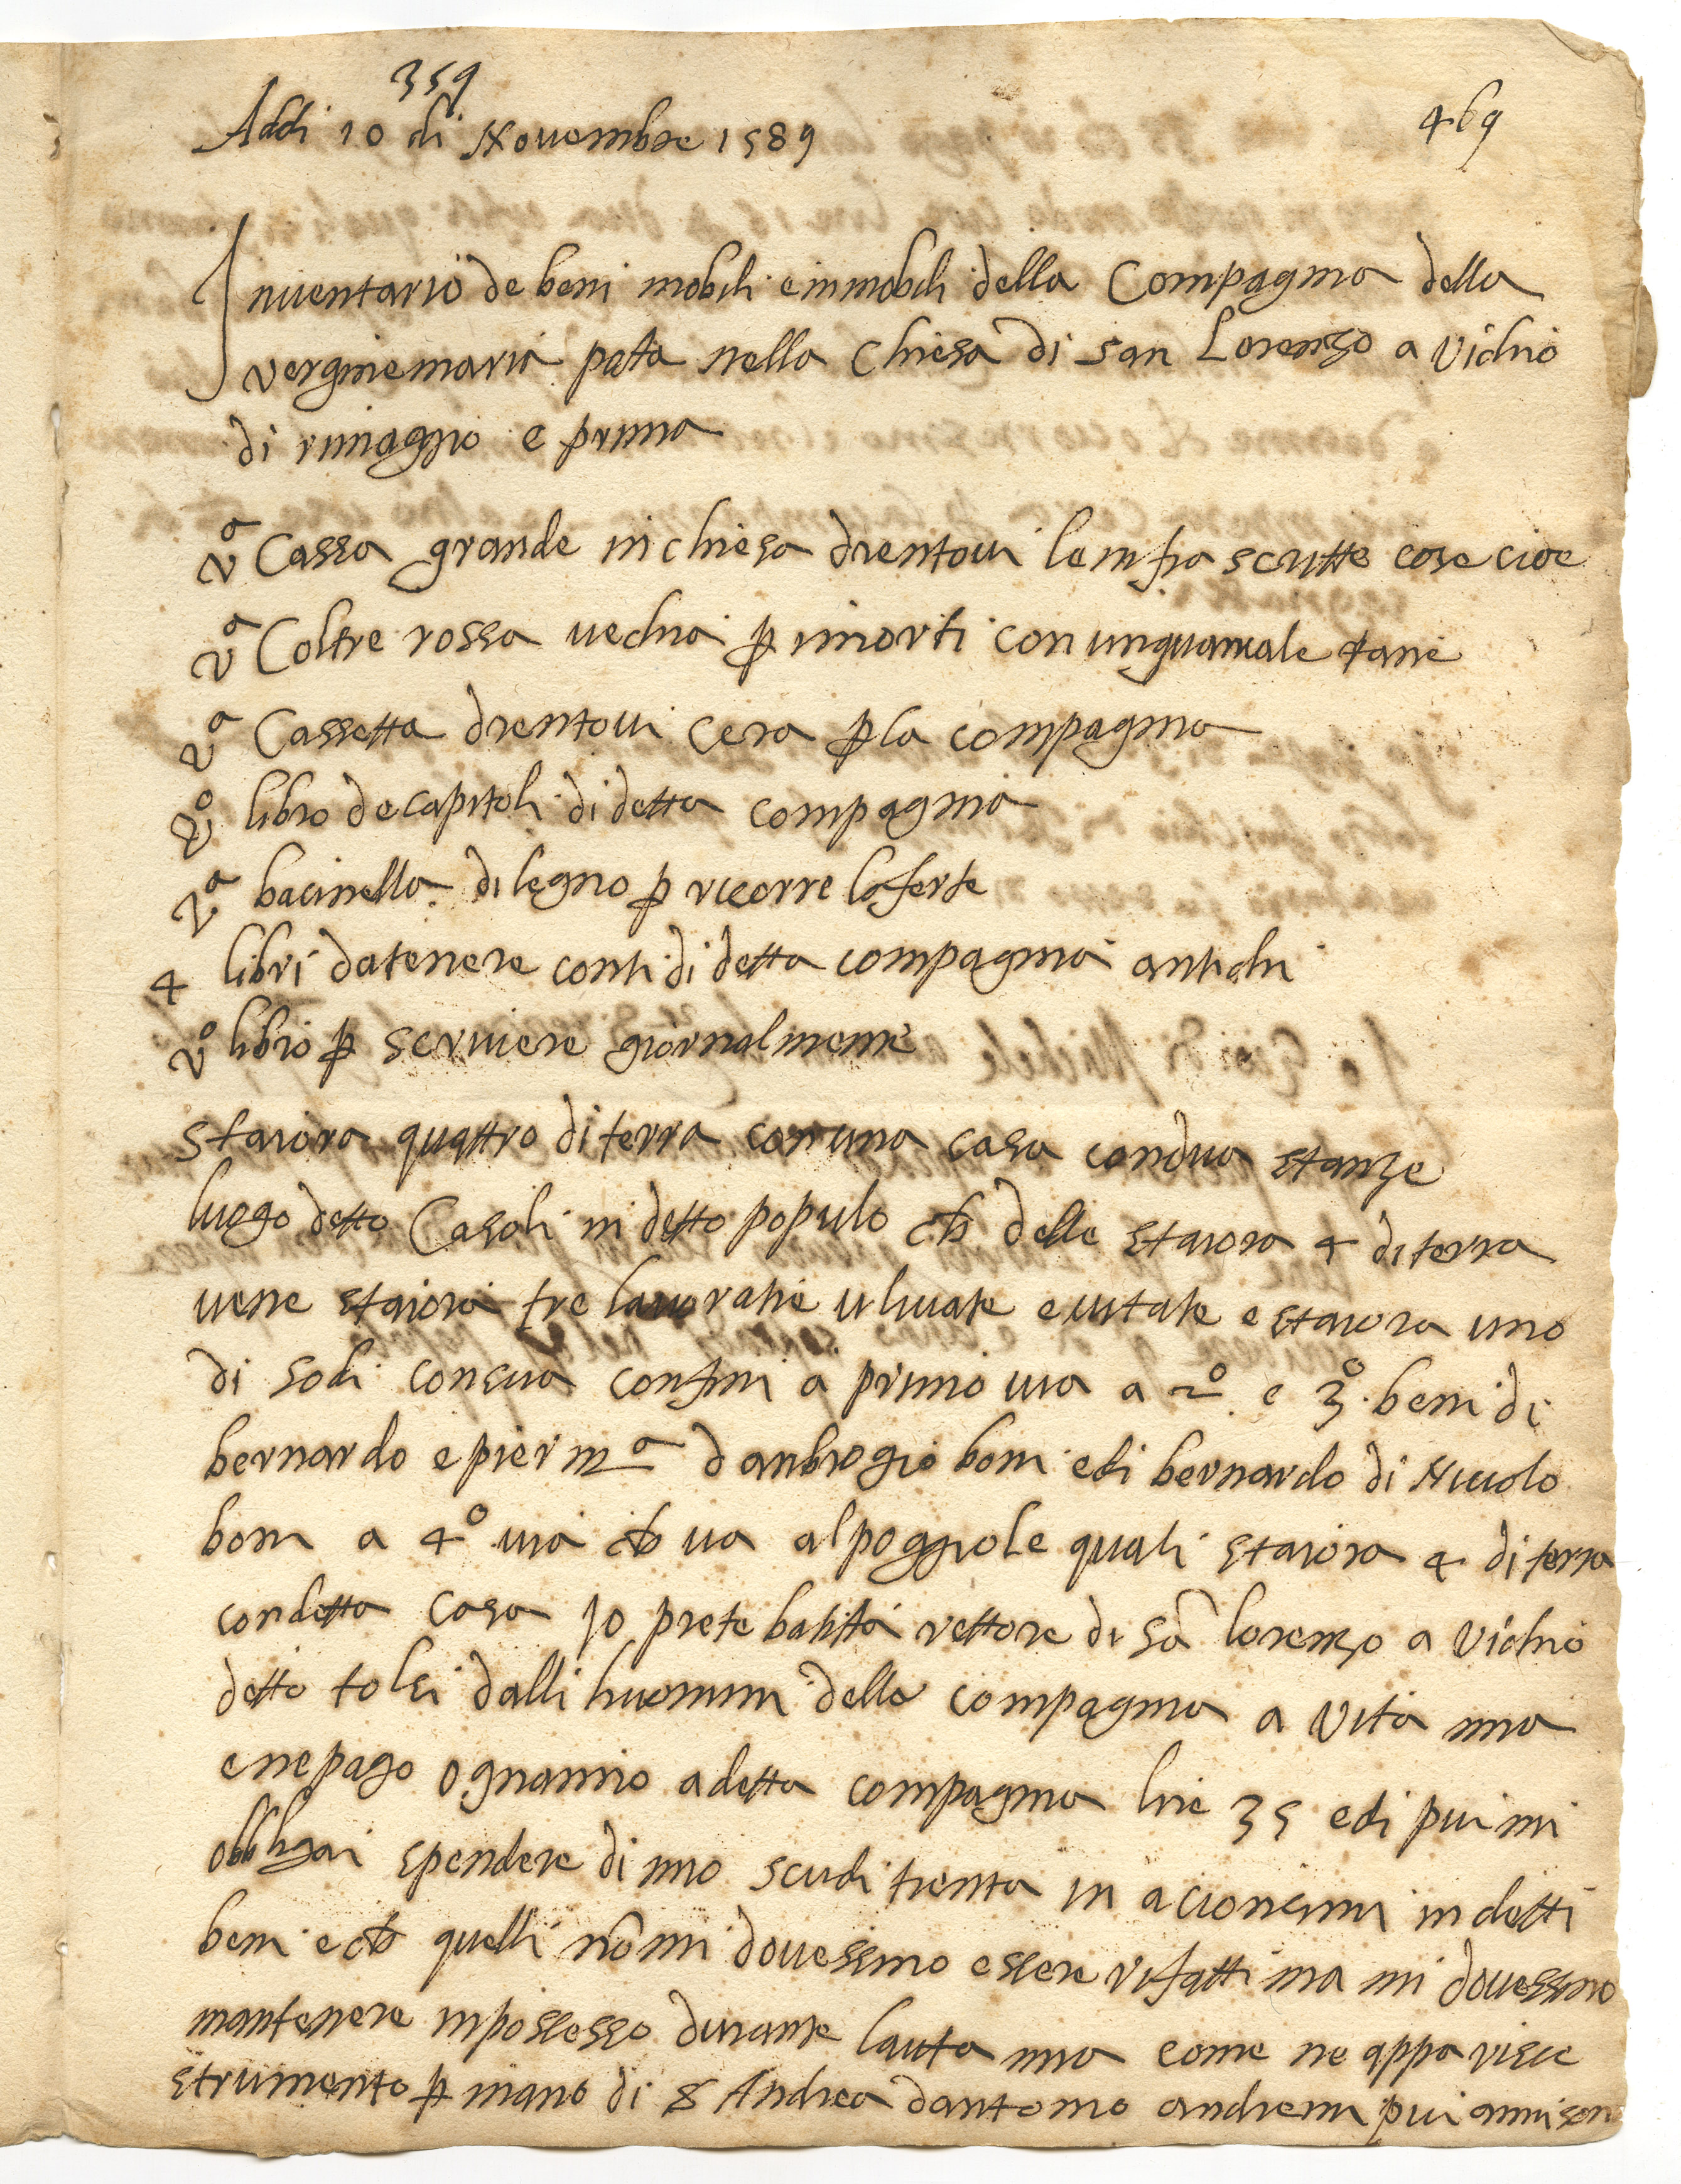 359
Addi 10 di Novembre 1589
469
Inventario de beni mobili e inmobili della Compagnia della
vergine maria pãta nella Chiesa di san Lorenzo a Vichio
di rimaggio e prima
va Cassa grande in chiesa drentovi lemfrascritte cose cioe
va Coltre rossa vechia p̱ imorti con unguanciale tane
va Cassetta drentovi cera p̱ la compagnia
vo libro de capitoli di detta compagnia
va bacinella di legno p̱ ricorre loferte
4 libri da tenere conti di detta compagnia antichi
vo libro p̱ scrivere giornalmente
staiora quattro di terra con una casa con dua stanze
luogo detto Casoli in detto populo ch delle staiora 4 di terra
vene staiora tre lavoratie ulivate e vitate e staiora uno
di sodi con sua confini a primo via a 2o e 3o beni di
bernardo e pier ma d anbrogio boni e di bernardo di Niccolo
boni a 4o via ch va al poggiole quali staiora 4 di terra
con detta casa Io prete batista rettore di sã lorenzo a Vichio
detto tolsi dalli huomini della compagnia a vita mia
e ne pago ognanno a detta compagnia lire 35 e di piu mi
obbligai spendere di mio scudi trenta in aconcimi in detti
beni e ch quelli nõ mi dovessino essere rifatti ma mi dovessino
mantenere in possesso durante la vita mia come ne apparisce
strumento p̱ mano di s Andrea dantonio andreini piu anni son